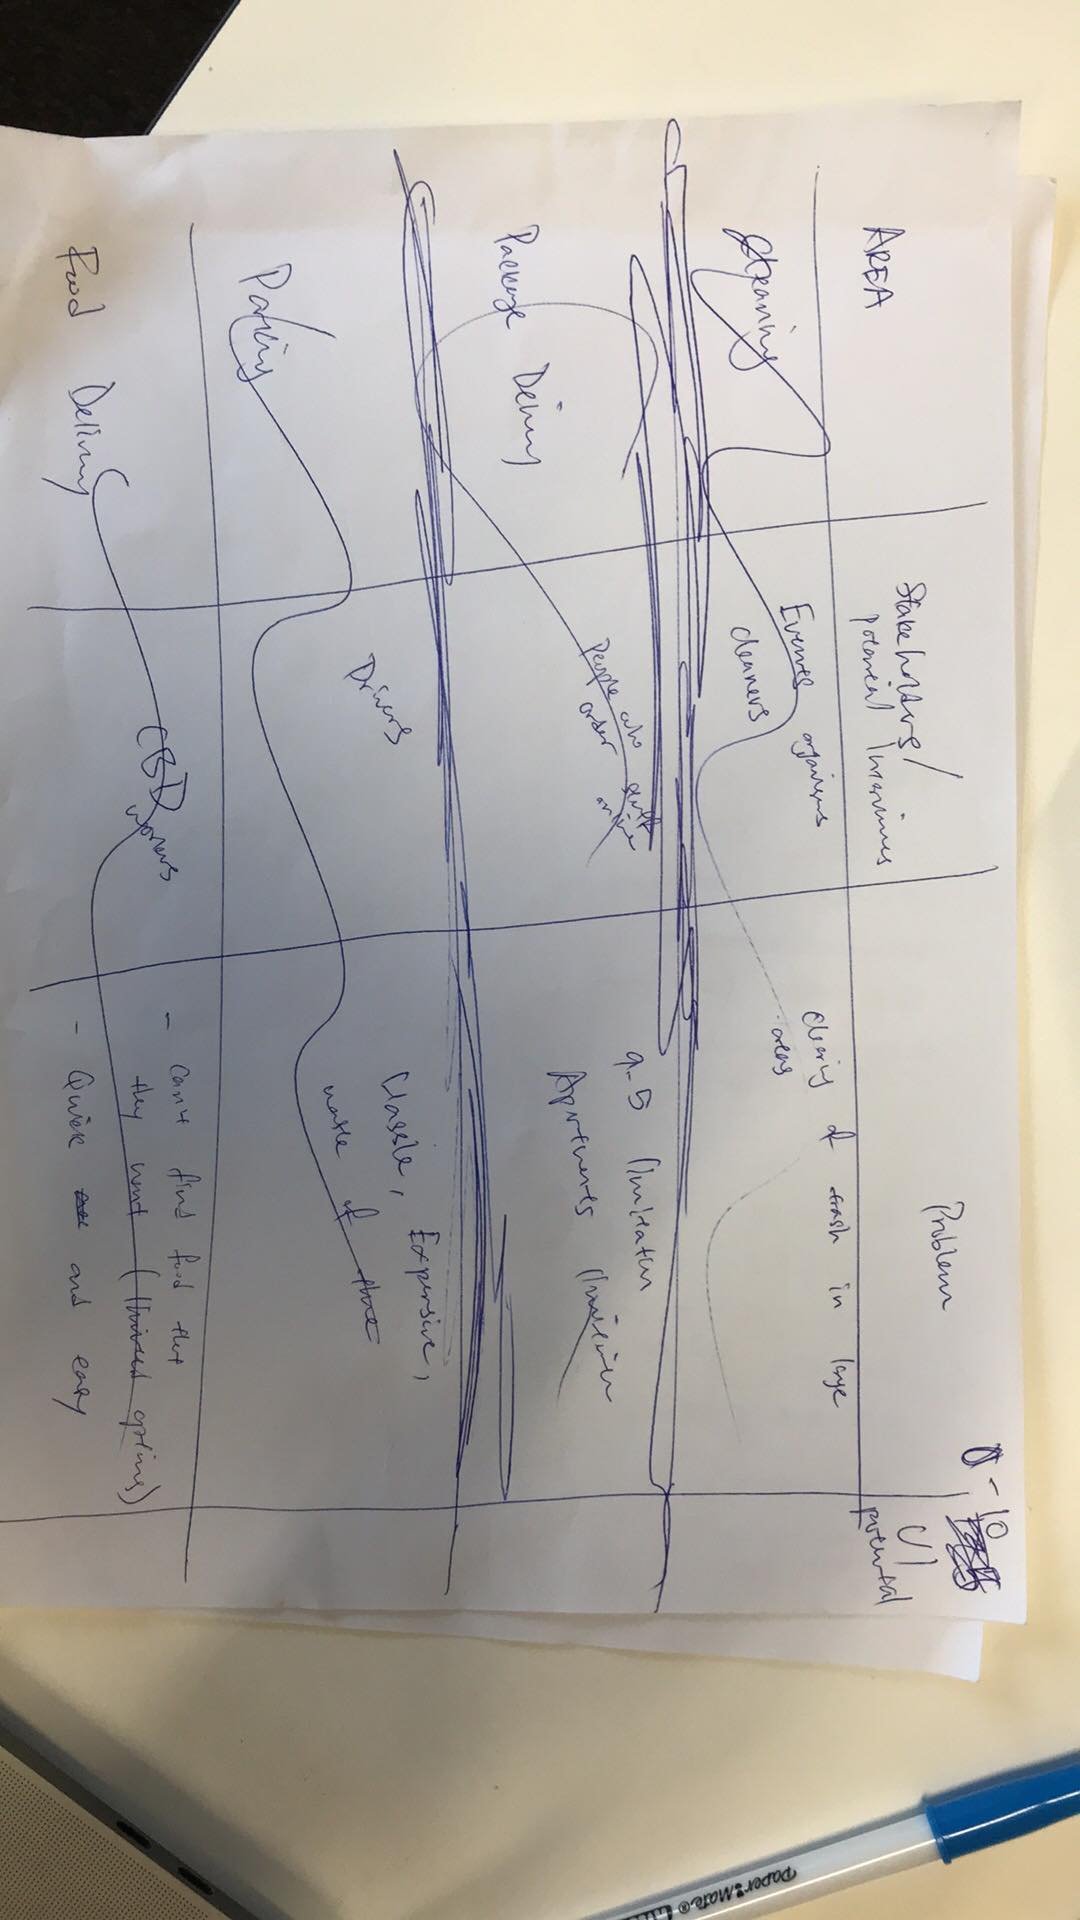 AREA
Stakeholders/
potential
Problem
0 - 10
potential
Cleaning
Events organisers
cleaners
clearing of trash in large
areas
Package Delivery
People who
order stuff
online
9-5 limitation
Apartments limitation
Parking
Drivers
Expensive,
waste of time
Food Delivery
CBD
workers
- Can't find food that
they want (limited options)
- Quick and easy
PaperMate